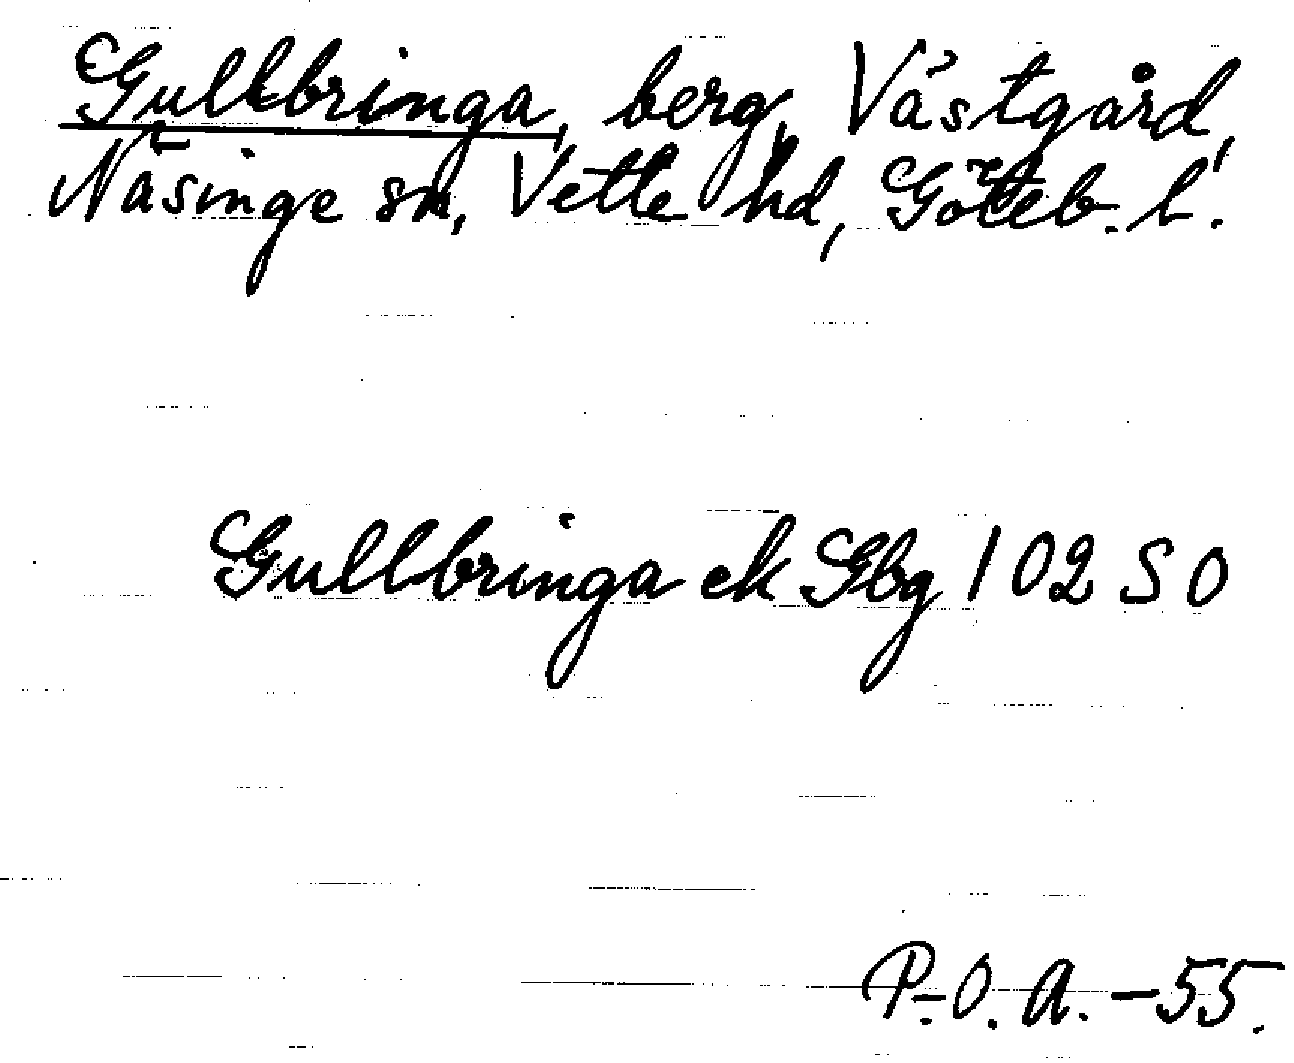 Gullbringa, berg, Västgård,
Näsinge sn, Vette hd, Göteb. l.
Gullbringa ek Gbg 102 SO
P.O.A. -55.